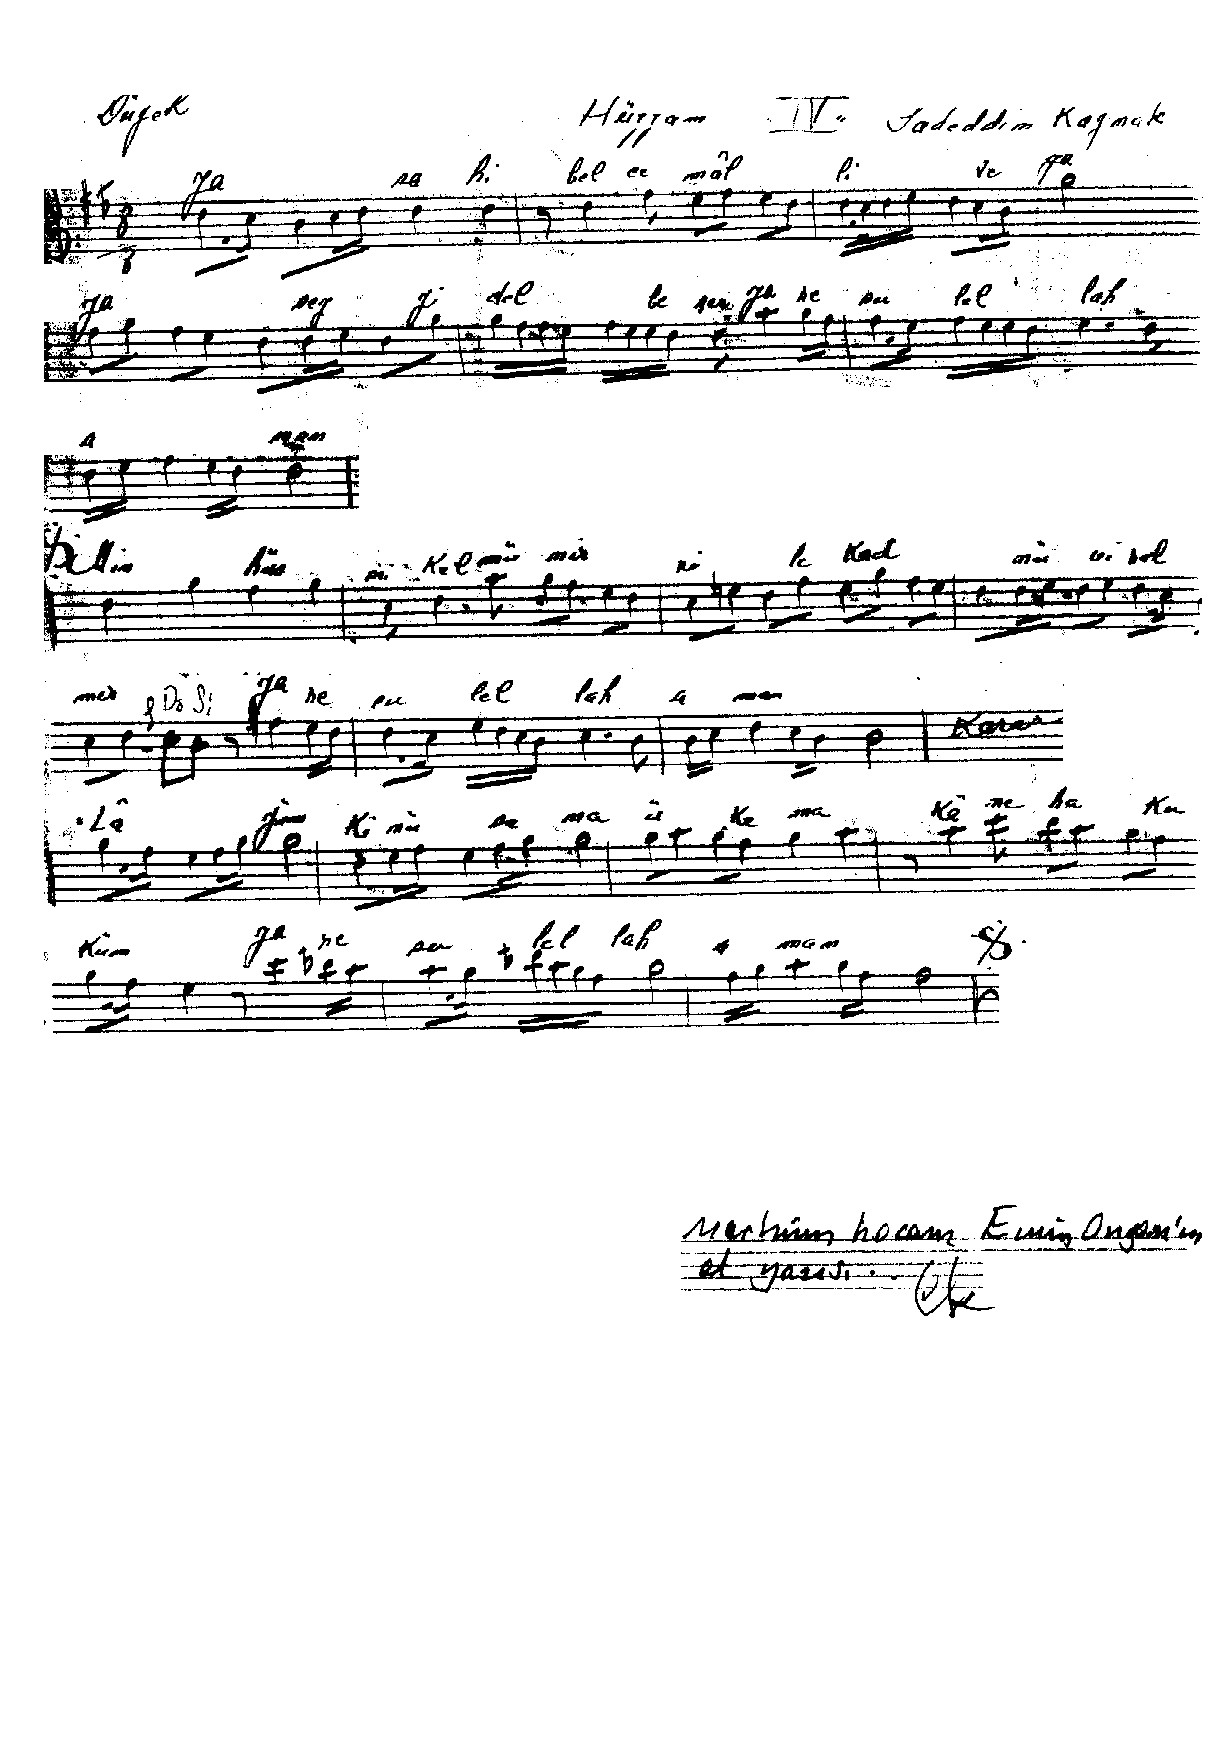 Düyek Hüzzam IV. Sadeddin Kaynak
Ya sa hi bel ce mâl li ve ya
Ya sey yi del be şer ya re su lel lah
a man
Min hün ni kel mü nir ni le kad mü vi rel
mer Do Si ya re su lel lah a man Karar
Lâ yüm ki nü se na ü ke ma kâ ne ha ku
Küm ya re su lel lah a man
Merhûm hocam Emin Ongan'ın
el yazısı...